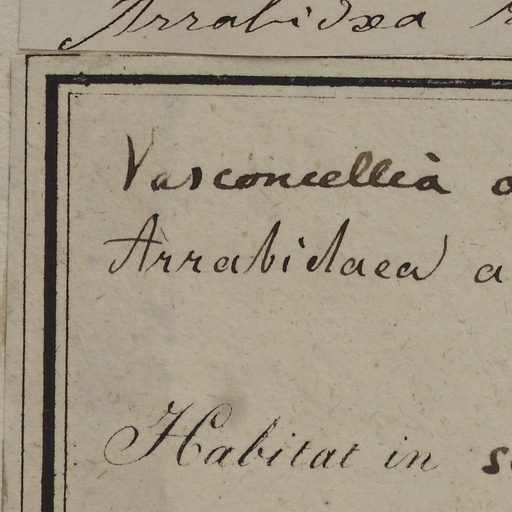 Arrabidæa
Vasconcellia
Arrabidaea a
Habitat in s